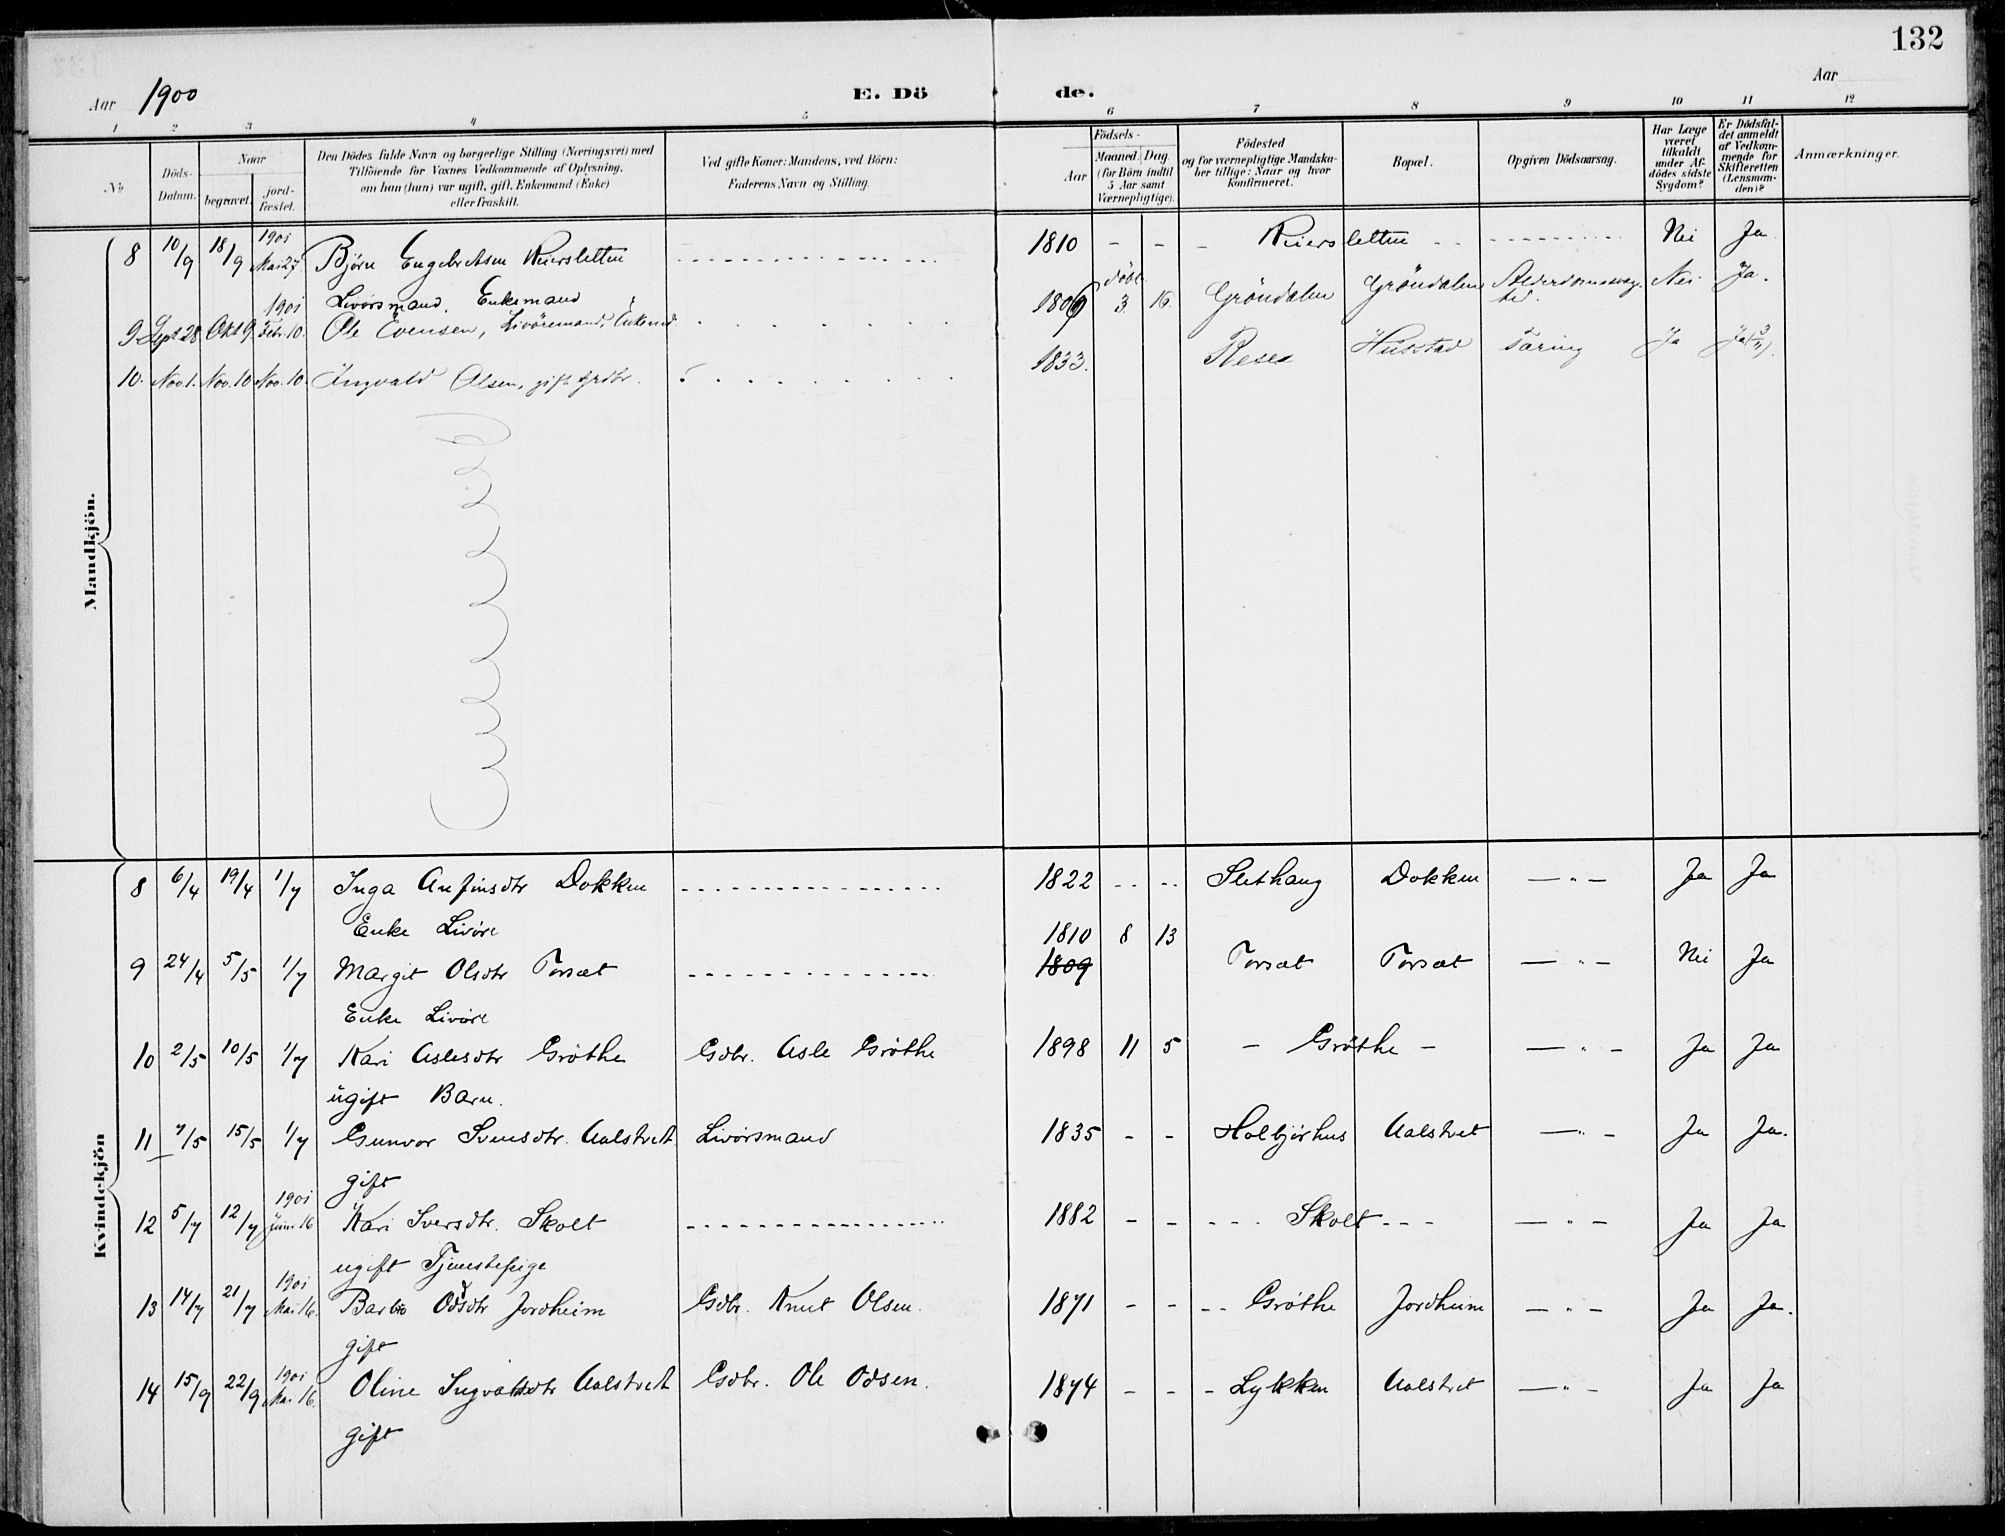 132
Aar 1900
E. Dö
de.
Aar
1 2 3 4 5 6 7 8 9 10 11 12
No
Döds-Datum.
Naar
begravet.
jord-fæstet.
Den Dödes fulde Navn og borgerlige Stilling (Næringsvei) med
Tilföiende for Voxnes Vedkommende af Oplysning,
om han (hun) var ugift, gift, Enkemand (Enke)
eller fraskilt.
Ved gifte Koner: Mandens, ved Börn:
Faderens Navn og Stilling.
Födsels-
Aar
Maaned. Dag.
(for Börn indtil
5 Aar samt
Værnepligtige).
Födested
og for værnepligtige Mandska-
ber tillige: Naar og hvor
konfirmeret.
Bopæl.
Opgiven Dödsaarsag.
Har Læge
været
tilkaldt
under Af-
dödes sidste
Sygdom?
Er Dödsfal-
det anmeldt
af Vedkom-
mende for
Skifteretten
(Lensman-
den)?
Anmærkninger.
Mandkjön.
8 10/9 18/9 1901 Mai 27 Björn Engebretsen Weiersletten 1810 - - - Weiersletten Nei Ja
Livörsmand, Enkemand
9 Sept 28 Okt 9. 1901 Febr. 10. Ole Evensen, Livöremand, Enkemd 1809 döbt 3. 16. Gröndalen Gröndalen Nei Ja.
10. Nov. 1. Nov. 10 Nov. 10. Ingvald Olsen, gift Grdbr. 1833. Husstad Tæring Ja
Kvindekjön
8 6/4 19/4 1/7 Inga Anfinsdtr Dokken 1822 Slethaug Dokken — " — Ja Ja
Enke Livöre
9 24/4 5/5 1/7 Margit Olsdtr Torsæt 1810 8 13 1809 Torsæt Torsæt — " — Nei Ja
Enke Livöre
10 2/5 10/5 1/7 Kari Aslesdtr Gröthe Gdbr. Asle Gröthe 1898 11 5 - Gröthe - — " — Ja Ja
ugift Barn.
11 7/5 15/5 1/7 Gunvor Svensdtr. Aalstveit Livörsmand 1835 - - Holbjörhus Aalstvet — " — Ja Ja.
gift
12 5/7 12/7 1901 Juni 16 Kari Iversdtr. Skolt 1882 - - - - - Skolt - - - — " — Ja Ja
ugift Tjenestepige
13 14/7 21/7 1901 Mai 16. Barbo Odsdtr Jordheim Gdbr. Knut Olsen. 1871 - - - - Gröthe Jordheim — " — Ja Ja.
gift
14 15/9 22/9 1901 Mai 16. Oline Ingvaldsdtr Aalstveit Gdbr. Ole Odsen. 1874 - - - Lykken Aalstvet — " — Ja Ja
gift